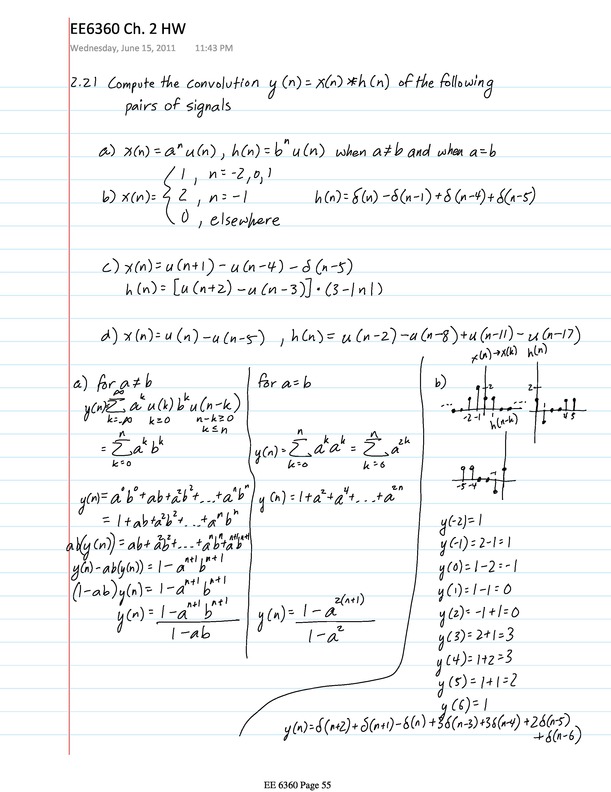 EE6360 Ch. 2 HW
Wednesday, June 15, 2011 11:43 PM
2.21 Compute the convolution y(n) = x(n) * h(n) of the following
pairs of signals
a) x(n) = aⁿu(n), h(n) = bⁿu(n) when a≠b and when a=b
b) x(n) = { 1, n = -2,0,1
2, n = -1
0, elsewhere
h(n) = δ(n) - δ(n-1) + δ(n-4) + δ(n-5)
c) x(n) = u(n+1) - u(n-4) - δ(n-5)
h(n) = [u(n+2) - u(n-3)]·(3-|n|)
d) x(n) = u(n) - u(n-5), h(n) = u(n-2) - u(n-8) + u(n-11) - u(n-17)
a) for a≠b
y(n) = Σ_{k=-∞}^{∞} a^k u(k) b^k u(n-k)
k≥0 n-k≥0
k≤n
= Σ_{k=0}^{n} a^k b^k
y(n) = a⁰b⁰ + ab + a²b² + ... + aⁿbⁿ
= 1 + ab + a²b² + ... + aⁿbⁿ
ab(y(n)) = ab + a²b² + ... + aⁿbⁿ + aⁿ⁺¹bⁿ⁺¹
y(n) - ab(y(n)) = 1 - aⁿ⁺¹bⁿ⁺¹
(1-ab)y(n) = 1 - aⁿ⁺¹bⁿ⁺¹
y(n) = (1 - aⁿ⁺¹bⁿ⁺¹)/(1-ab)
for a=b
y(n) = Σ_{k=0}^{n} a^k a^k = Σ_{k=0}^{n} a^{2k}
y(n) = 1 + a² + a⁴ + ... + a²ⁿ
y(n) = (1 - a^{2(n+1)})/(1 - a²)
b)
x(n)→x(k) h(n)
2 2
-2 -1 1 1 4 5
h(n-k)
-5 -4 -1
y(-2) = 1
y(-1) = 2-1 = 1
y(0) = 1-2 = -1
y(1) = 1-1 = 0
y(2) = -1+1 = 0
y(3) = 2+1 = 3
y(4) = 1+2 = 3
y(5) = 1+1 = 2
y(6) = 1
y(n) = δ(n+2) + δ(n+1) - δ(n) + 3δ(n-3) + 3δ(n-4) + 2δ(n-5)
+ δ(n-6)
EE 6360 Page 55